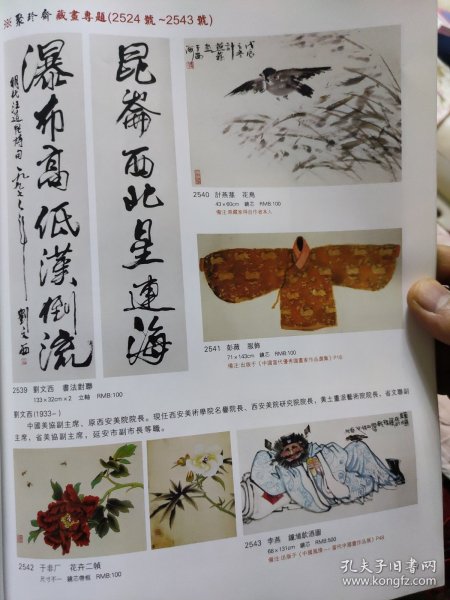 ※聚珍齋藏畫專題(2524 號~2543 號)
崑崙西北星連海
瀑布高低漢倒流
2540 計燕蓀 花鳥
43×60cm 鏡芯 RMB:100
備注:原藏家得自作者本人
2541 彭薇 服飾
71×143cm 鏡芯 RMB:100
備注:出版于《中國當代優秀國畫家作品選集》P18
2539 劉文西 書法對聯
133×32cm×2 立軸 RMB:100
劉文西(1933—)
中國美協副主席、原西安美院院長。現任西安美術學院名譽院長、西安美院研究院院長,黃土畫派藝術院院長,省文聯副
主席,省美協副主席,延安市副市長等職。
2542 于非厂 花卉二幀
尺寸不一 鏡芯帶框 RMB:100
2543 李燕 鍾馗飲酒圖
68×131cm 鏡芯 RMB:500
孔夫子旧书网
www.kongfz.com